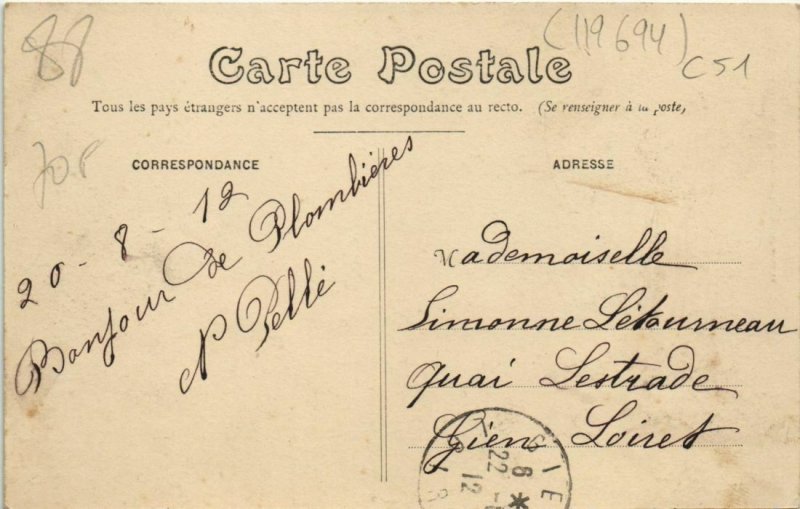 88
(119694)
C51
Carte Postale
Tous les pays étrangers n'acceptent pas la correspondance au recto. (Se renseigner à la poste)
CORRESPONDANCE
20 - 8 - 12
Bonjour de Plombières
N Pellé
ADRESSE
Mademoiselle
Simonne Létourneau
Quai Lestrade
Gien Loiret
GIE
6 *
22 -
12